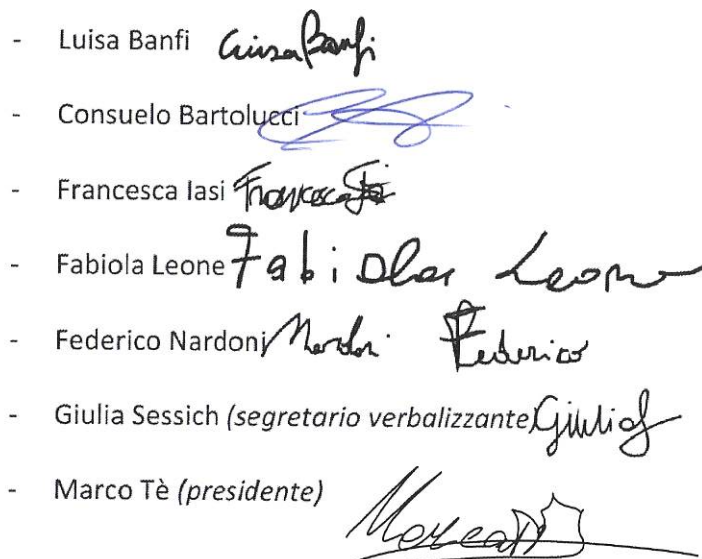 - Luisa Banfi Luisa Banfi
- Consuelo Bartolucci
- Francesca Iasi Francesca
- Fabiola Leone Fabiola Leone
- Federico Nardoni Nardoni Federico
- Giulia Sessich (segretario verbalizzante) Giulia S
- Marco Tè (presidente) Marco